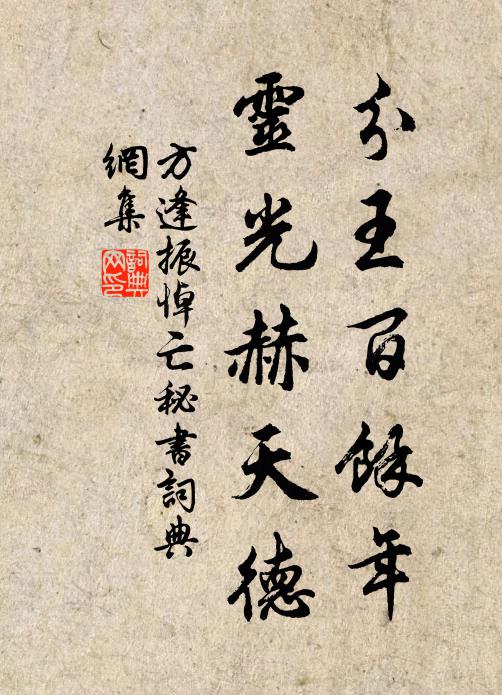 分王百餘年
靈光赫天德
方逢振悼亡秘書詞典
網集
詞典
网印